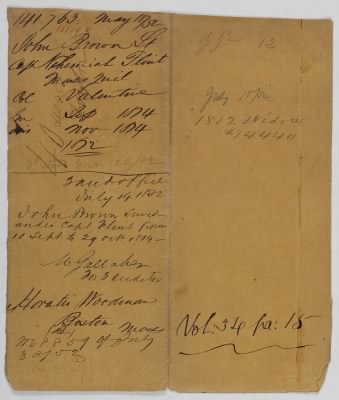 141.763. May 19/52
John Brown Lt
Cap Nehemiah Flint
Mass Mil
Col Valentine
Sep 1814
Dis Nov 1814
1812
3d Aud
Land office
July 14, 1852
John Brown served
under Capt Flint from
11 Sept to 29 Oct 1814 -
McGallaher
for 3 Auditor
Horatio Woodman
Boston Mass
of July
3 of 52
12
July 15/52
1812 Widow
#14440
Vol: 34 pa: 15